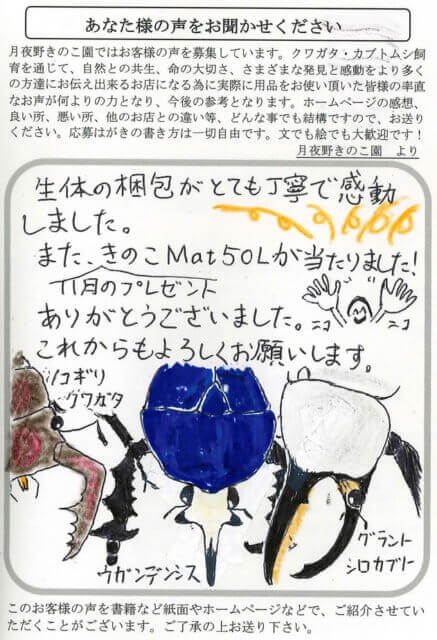 あなた様の声をお聞かせください
月夜野きのこ園ではお客様の声を募集しています。クワガタ・カブトムシ飼
育を通じて、自然との共生、命の大切さ、さまざまな発見と感動をより多く
の方達にお伝え出来るお店になる為に実際に用品をお使い頂いた皆様の率直
なお声が何よりの力となり、今後の参考となります。ホームページの感想、
良い所、悪い所、他のお店との違い等、どんな事でも結構ですので、お送り
ください。応募はがきの書き方は一切自由です。文でも絵でも大歓迎です！
月夜野きのこ園 より
生体の梱包がとても丁寧で感動
しました。
また、きのこMat50Lが当たりました!
11月のプレゼント
ありがとうございました。
ニコ ニコ
これからもよろしくお願いします。
ノコギリ
クワガタ
ウガンデンシス
グラント
シロカブト
このお客様の声を書籍など紙面やホームページなどで、ご紹介させてい
ただくことがございます。ご了承の上お送り下さい。